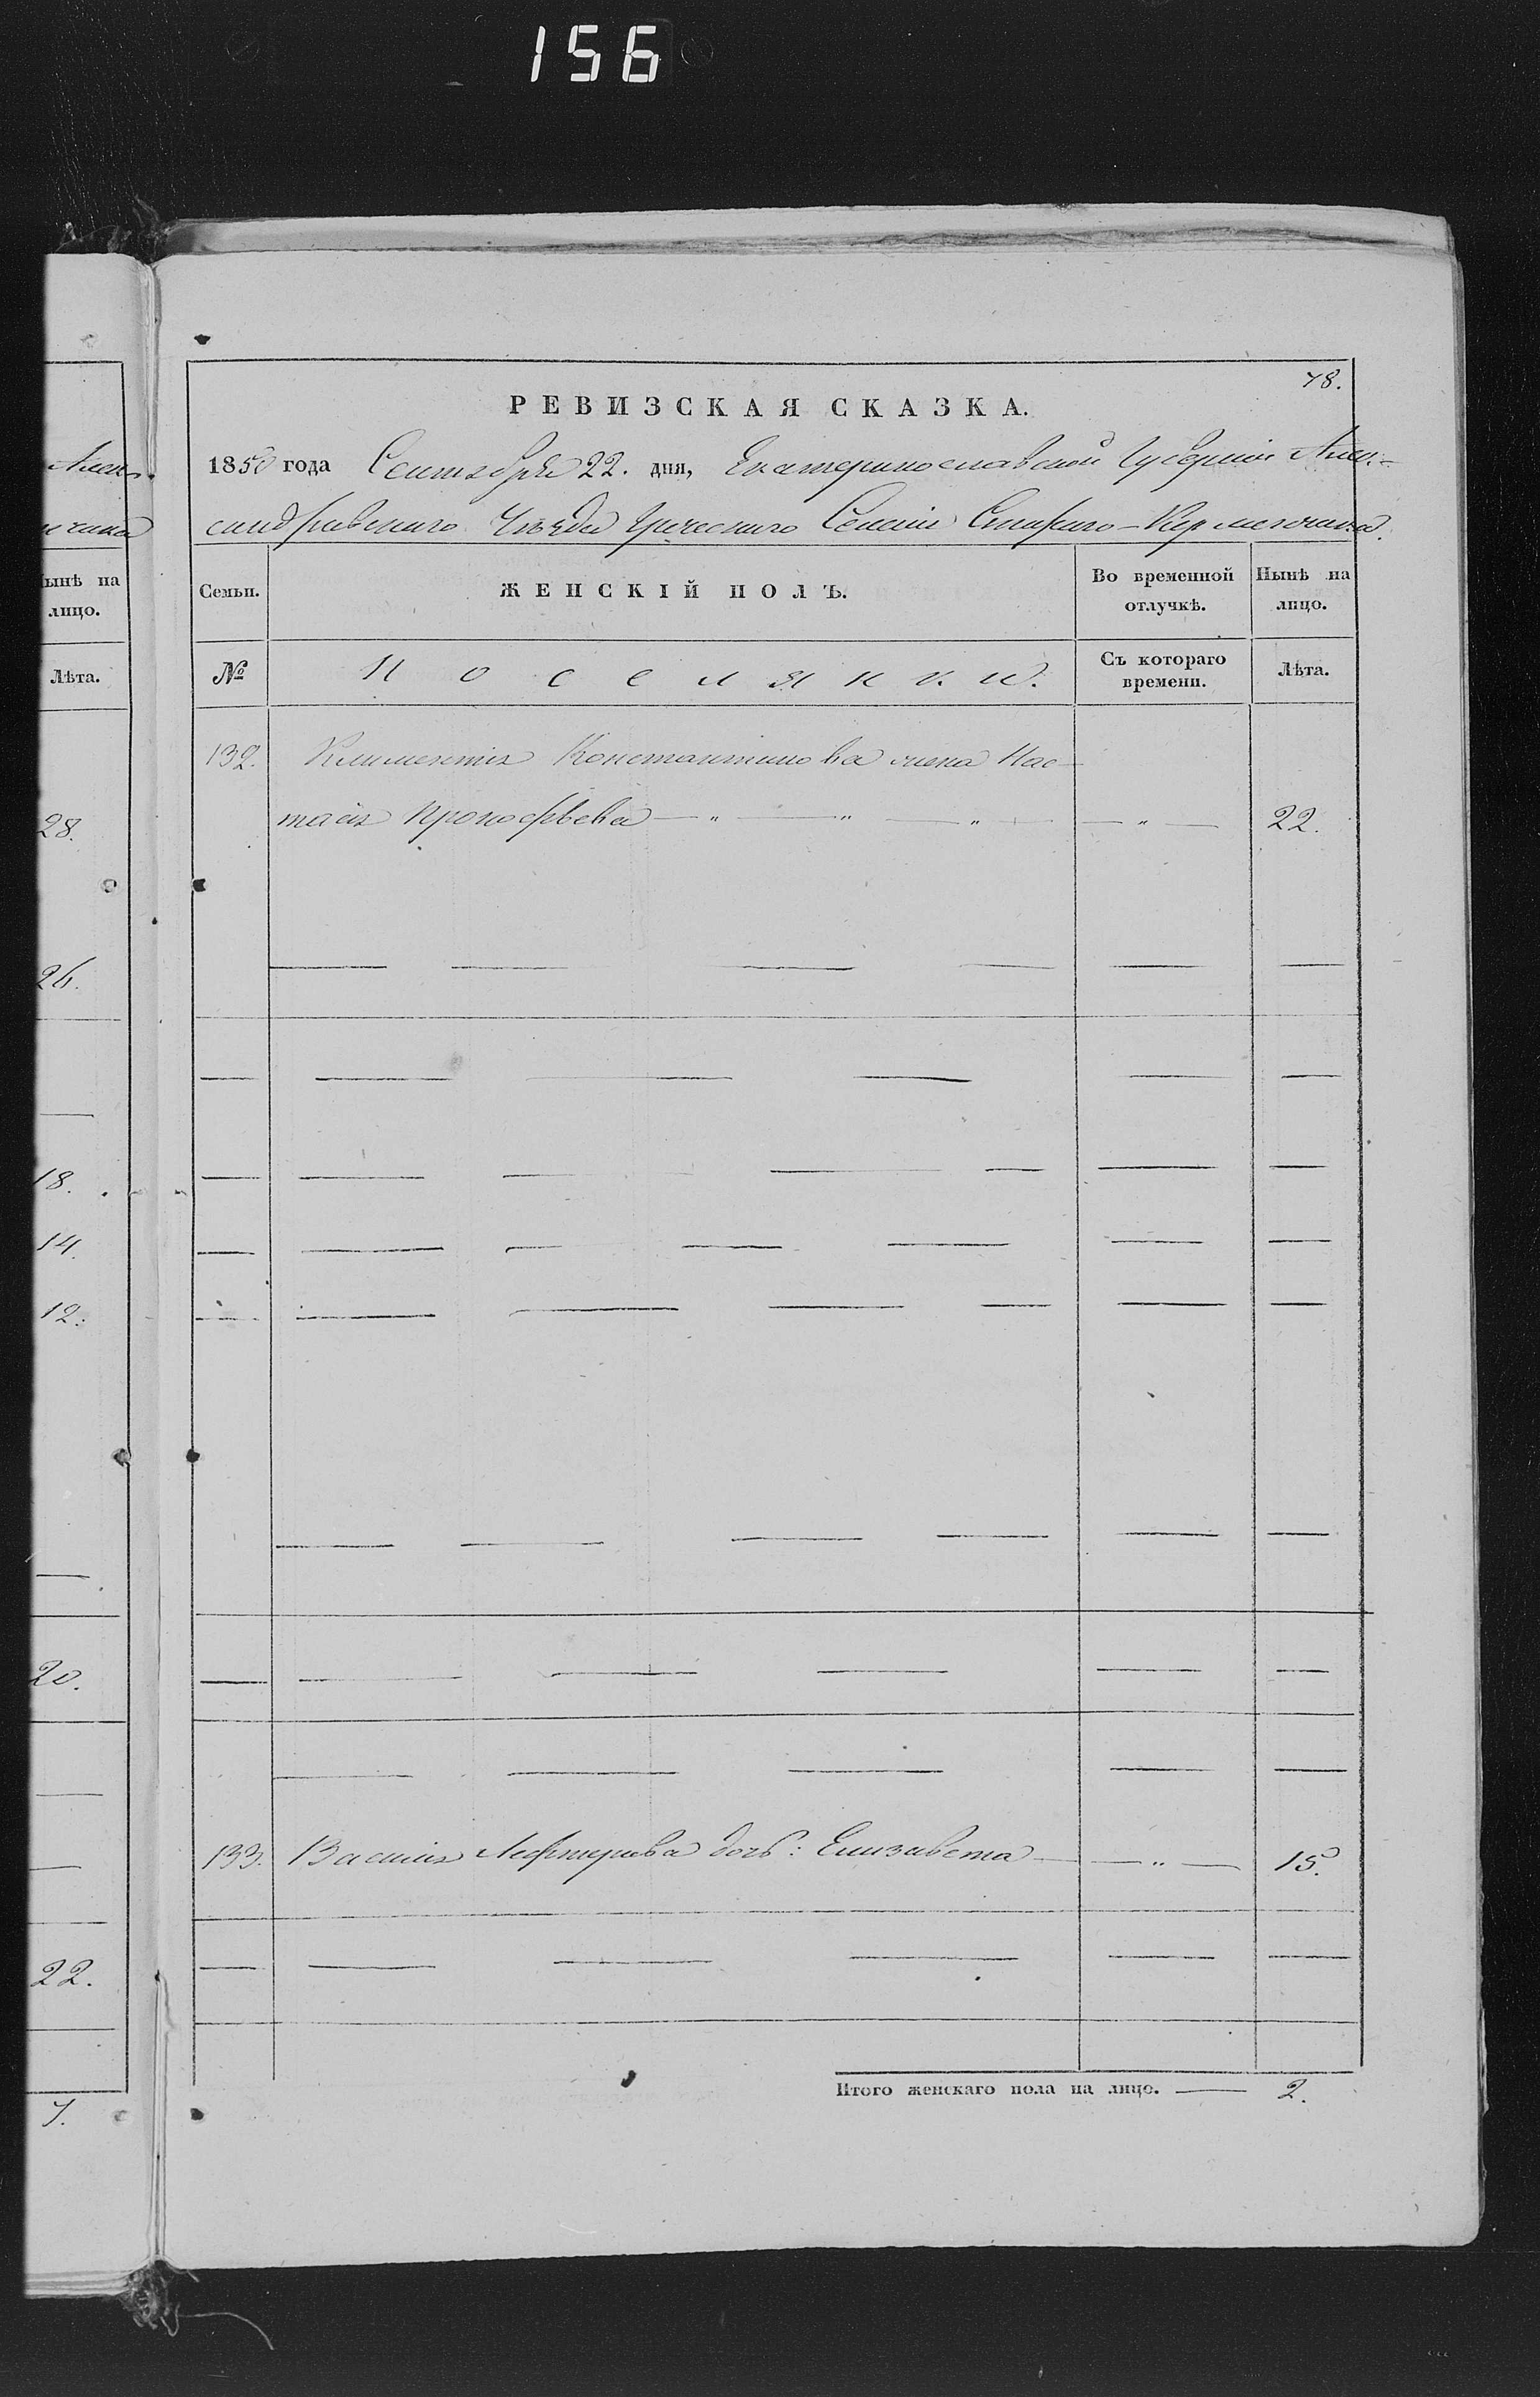 156
78.
РЕВИЗСКАЯ СКАЗКА.
1850 года Сентября 22. дня, Екатеринославской Губерніи Алек-
сандровскаго Уѣзда Греческаго Селенія Стараго-Керменчика.
Семьи. ЖЕНСКІЙ ПОЛЪ. Во временной отлучкѣ. Нынѣ на лицо.
№ Поселянки. Съ котораго времени. Лѣта.
132. Климентія Константинова жена Нас-
тасія Прокофьева — „ — „ — „ — — „ — 22.
133. Василія Лефтерева дочь: Елизавета — — „ — 15.
Итого женскаго пола на лицо. — 2.
Алек-
чика
ынѣ на
лицо.
Лѣта.
28.
26.
18.
14.
12.
20.
22.
7.